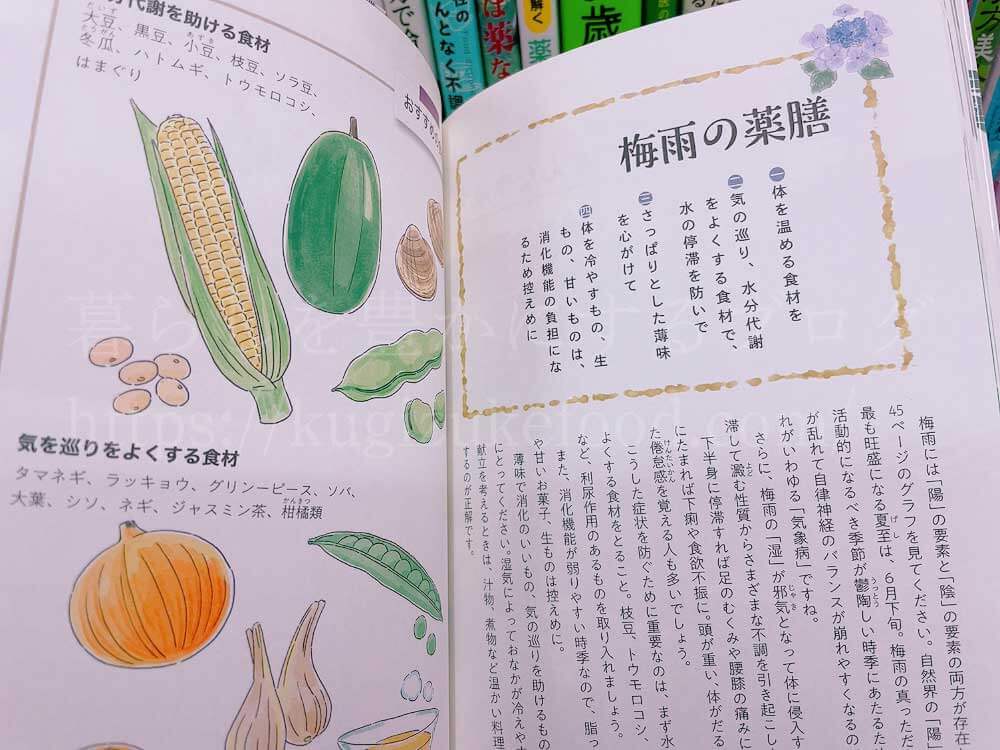 分代謝を助ける食材
大豆、黒豆、小豆、枝豆、ソラ豆、
冬瓜、ハトムギ、トウモロコシ、
はまぐり
おすすめの
気を巡りをよくする食材
タマネギ、ラッキョウ、グリンーピース、ソバ、
大葉、シソ、ネギ、ジャスミン茶、柑橘類
梅雨の薬膳
一 体を温める食材を
二 気の巡り、水分代謝
をよくする食材で、
水の停滞を防いで
三 さっぱりとした薄味
を心がけて
四 体を冷やすもの、生
もの、甘いものは、
消化機能の負担にな
るため控えめに
梅雨には「陽」の要素と「陰」の要素の両方が存在
45ページのグラフを見てください。自然界の「陽
最も旺盛になる夏至は、6月下旬。梅雨の真っただ
活動的になるべき季節が鬱陶しい時季にあたるた
が乱れて自律神経のバランスが崩れやすくなるの
れがいわゆる「気象病」ですね。
さらに、梅雨の「湿」が邪気となって体に侵入す
滞して澱む性質からさまざまな不調を引き起こし
下半身に停滞すれば足のむくみや腰膝の痛みに
にたまれば下痢や食欲不振に。頭が重い、体がだる
た倦怠感を覚える人も多いでしょう。
こうした症状を防ぐために重要なのは、まず水
よくする食材をとること。枝豆、トウモロコシ、
など、利尿作用のあるものを取り入れましょう。
また、消化機能が弱りやすい時季なので、脂っ
や甘いお菓子、生ものは控えめに。
薄味で消化のいいもの、気の巡りを助けるもの
にとってください。湿気によっておなかが冷えや
献立を考えるときは、汁物、煮物など温かい料理
するのが正解です。
暮らしを豊かにするブログ
https://kugizukefood.com/